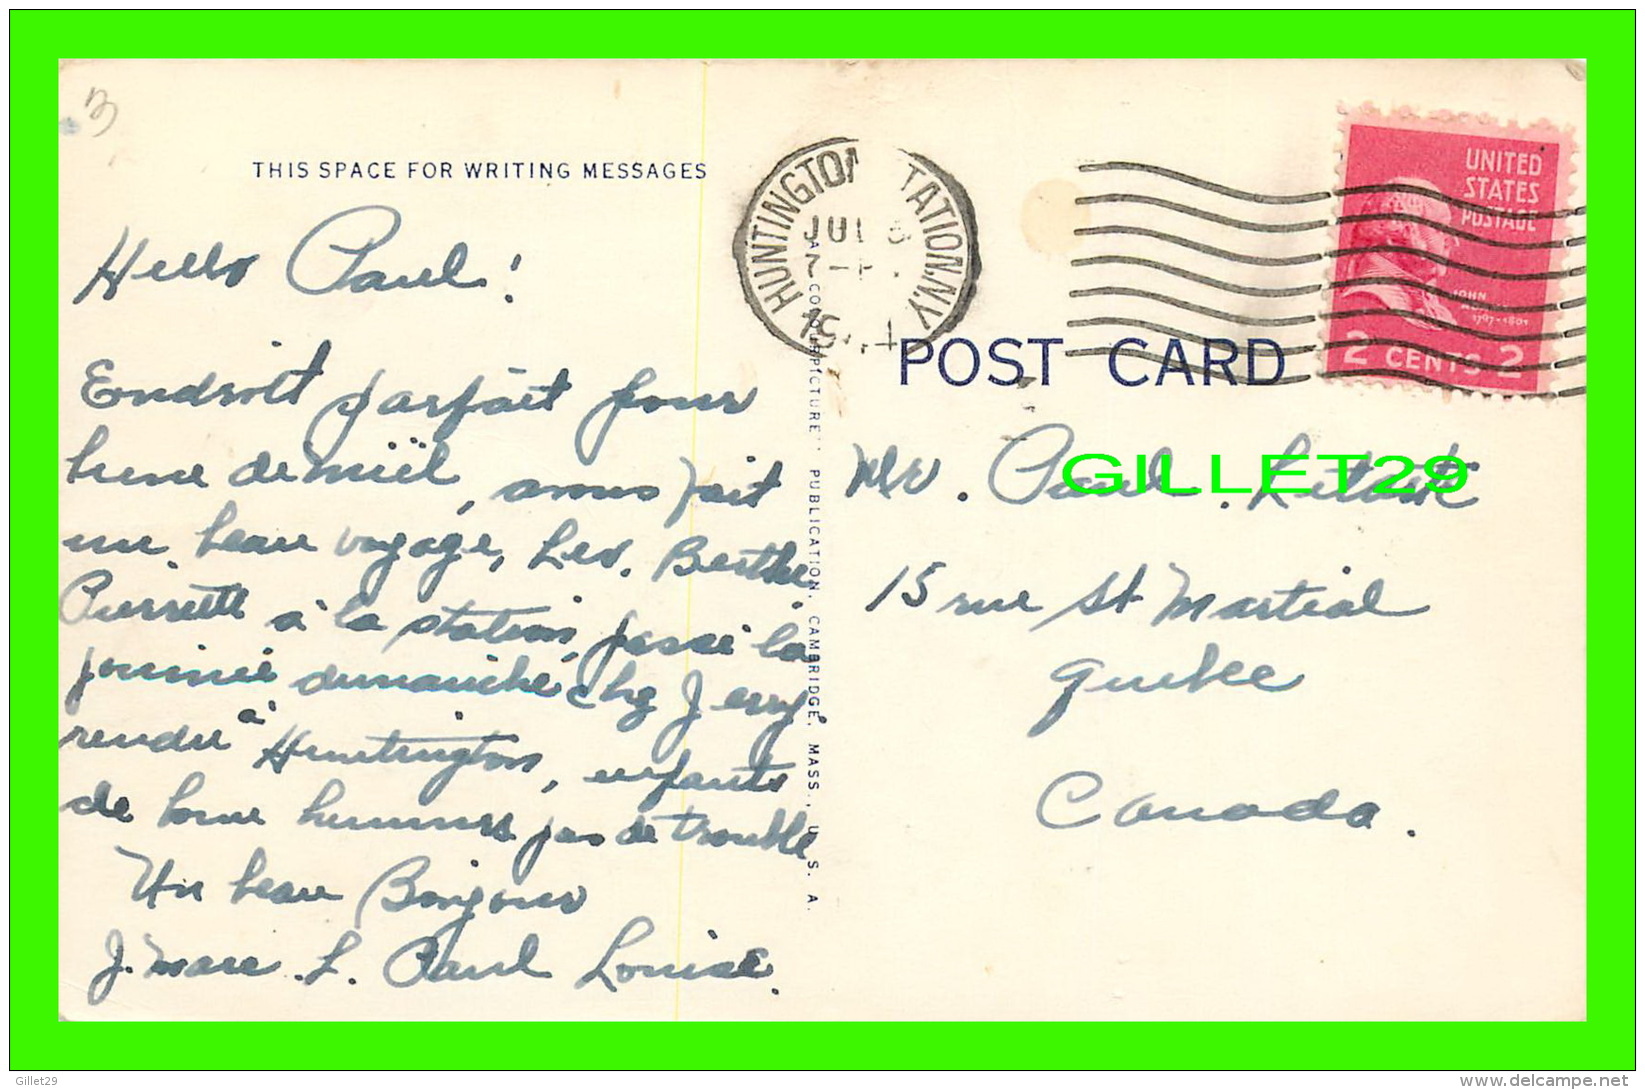 3
THIS SPACE FOR WRITING MESSAGES
Hello Paul!
Eondroit parfait pour
lune de miël, avons fait
un beau voyage, Les. Berthe
Pierrette à la station, passé la
journée dimanche chez Jerry.
rendu à Huntington, enfants
de bonne hummer pas de trouble
Un beau Bonjour
J. Marc. L. Paul Louise.
HUNTINGTON STATION, N.Y.
JUL
UNITED
STATES
POSTAGE
JOHN
1797-1801
2 CENTS 2
POST CARD
PICTURE" PUBLICATION, CAMBRIDGE, MASS., U. S. A.
Mr. Paul.
GILLET29
15 rue St Martial
Quebec
Canada.
Gillet29
www.delcampe.net